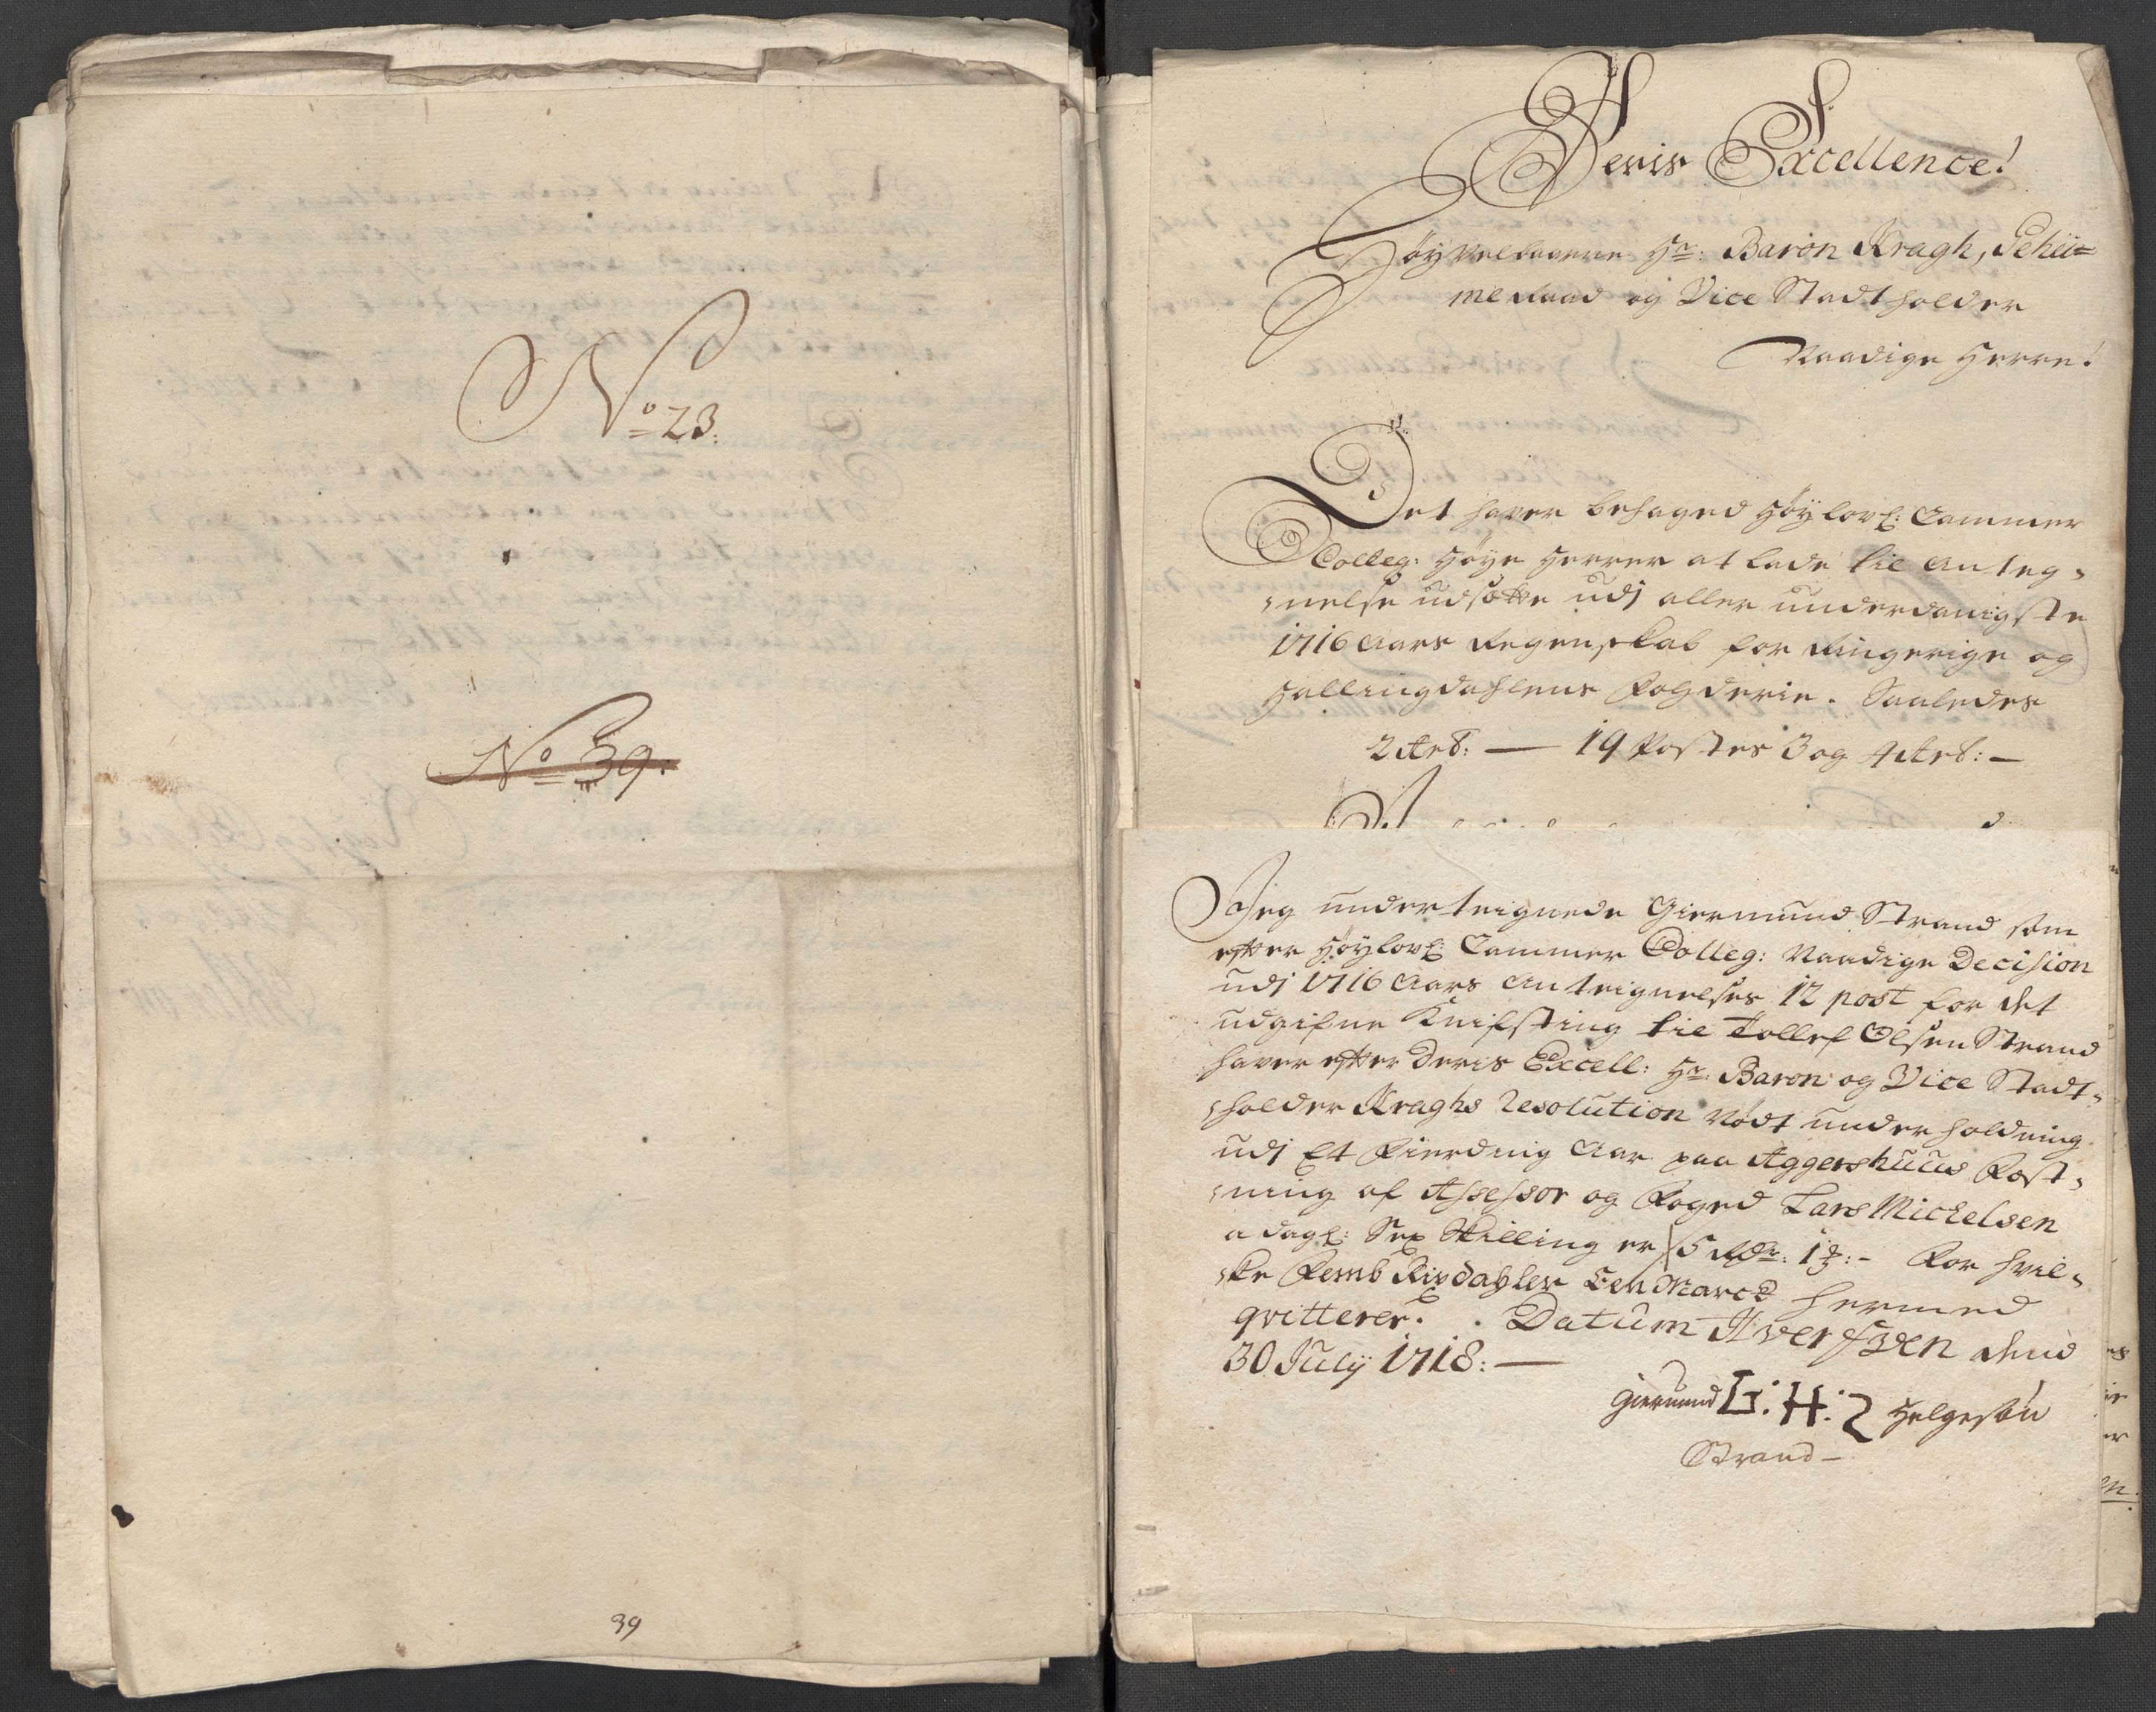 No 23.
No 39.
39
Deris Excellence!
Høyvelbaarne Hr: Baron Kragh, Geheii=
me Raad og Vice Stadtholder
Naadige Herre!
Det haver behaged Høylovl: Cammer
Colleg: Høye Herrer at lade til Anteg-
-nelse udsætte udj aller underdanigste
1716 Aars Regenskab for Ringerige og
Hallingdahlens Fogderie. Saaledes
2 Art: — 19 Postes 3 og 4 Art: —
Jeg underteignede Giermund Strand som
efter Høylovl: Cammer Colleg: Naadige Decision
udj 1716 Aars Anteignelses 12 post for det
udgifne Knifsting til Tollef Olsen Strand
haver efter Deris Excell: Hr: Baron og Vice Stadt-
-holder Kraghs Resolution Nødt underholdning
udj Et Fierding Aar paa Aggershuus Fæst-
-ning af Assessor og Foged Lars Michelsen
a dagl: Sex Skilling er 5 Rdr: 1 ƶ:- For hvil-
-ke Femb Rixdahler Een Marck hermed
qvitterer. Datum
30 July 1718: —
Giermund G. H. S Helgesøn
Strand —